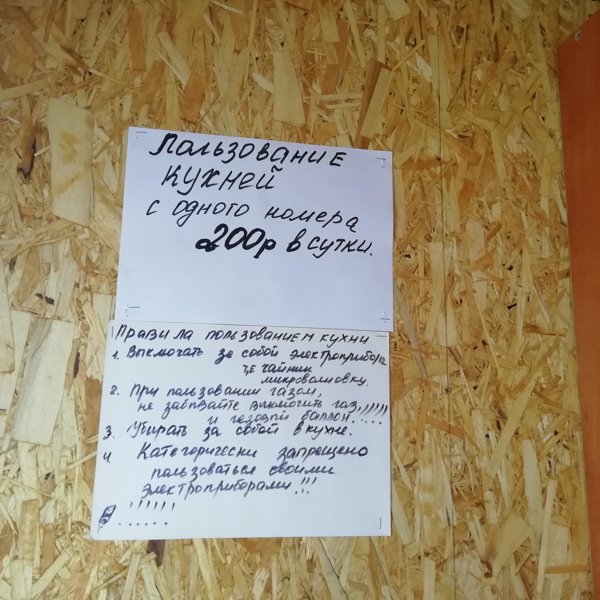 Пользование
кухней
с одного номера
200р в сутки.
Правила пользованием кухни
1. Выключать за собой
чайник
микроволновку.
2. При пользовании газом,
не забывайте выключить газ,!!!!!
и газовый баллон.....
3. Убирать за собой в кухне.
4 Категорически запрещено
пользоваться своими
электроприборами!!!
!!!!!!